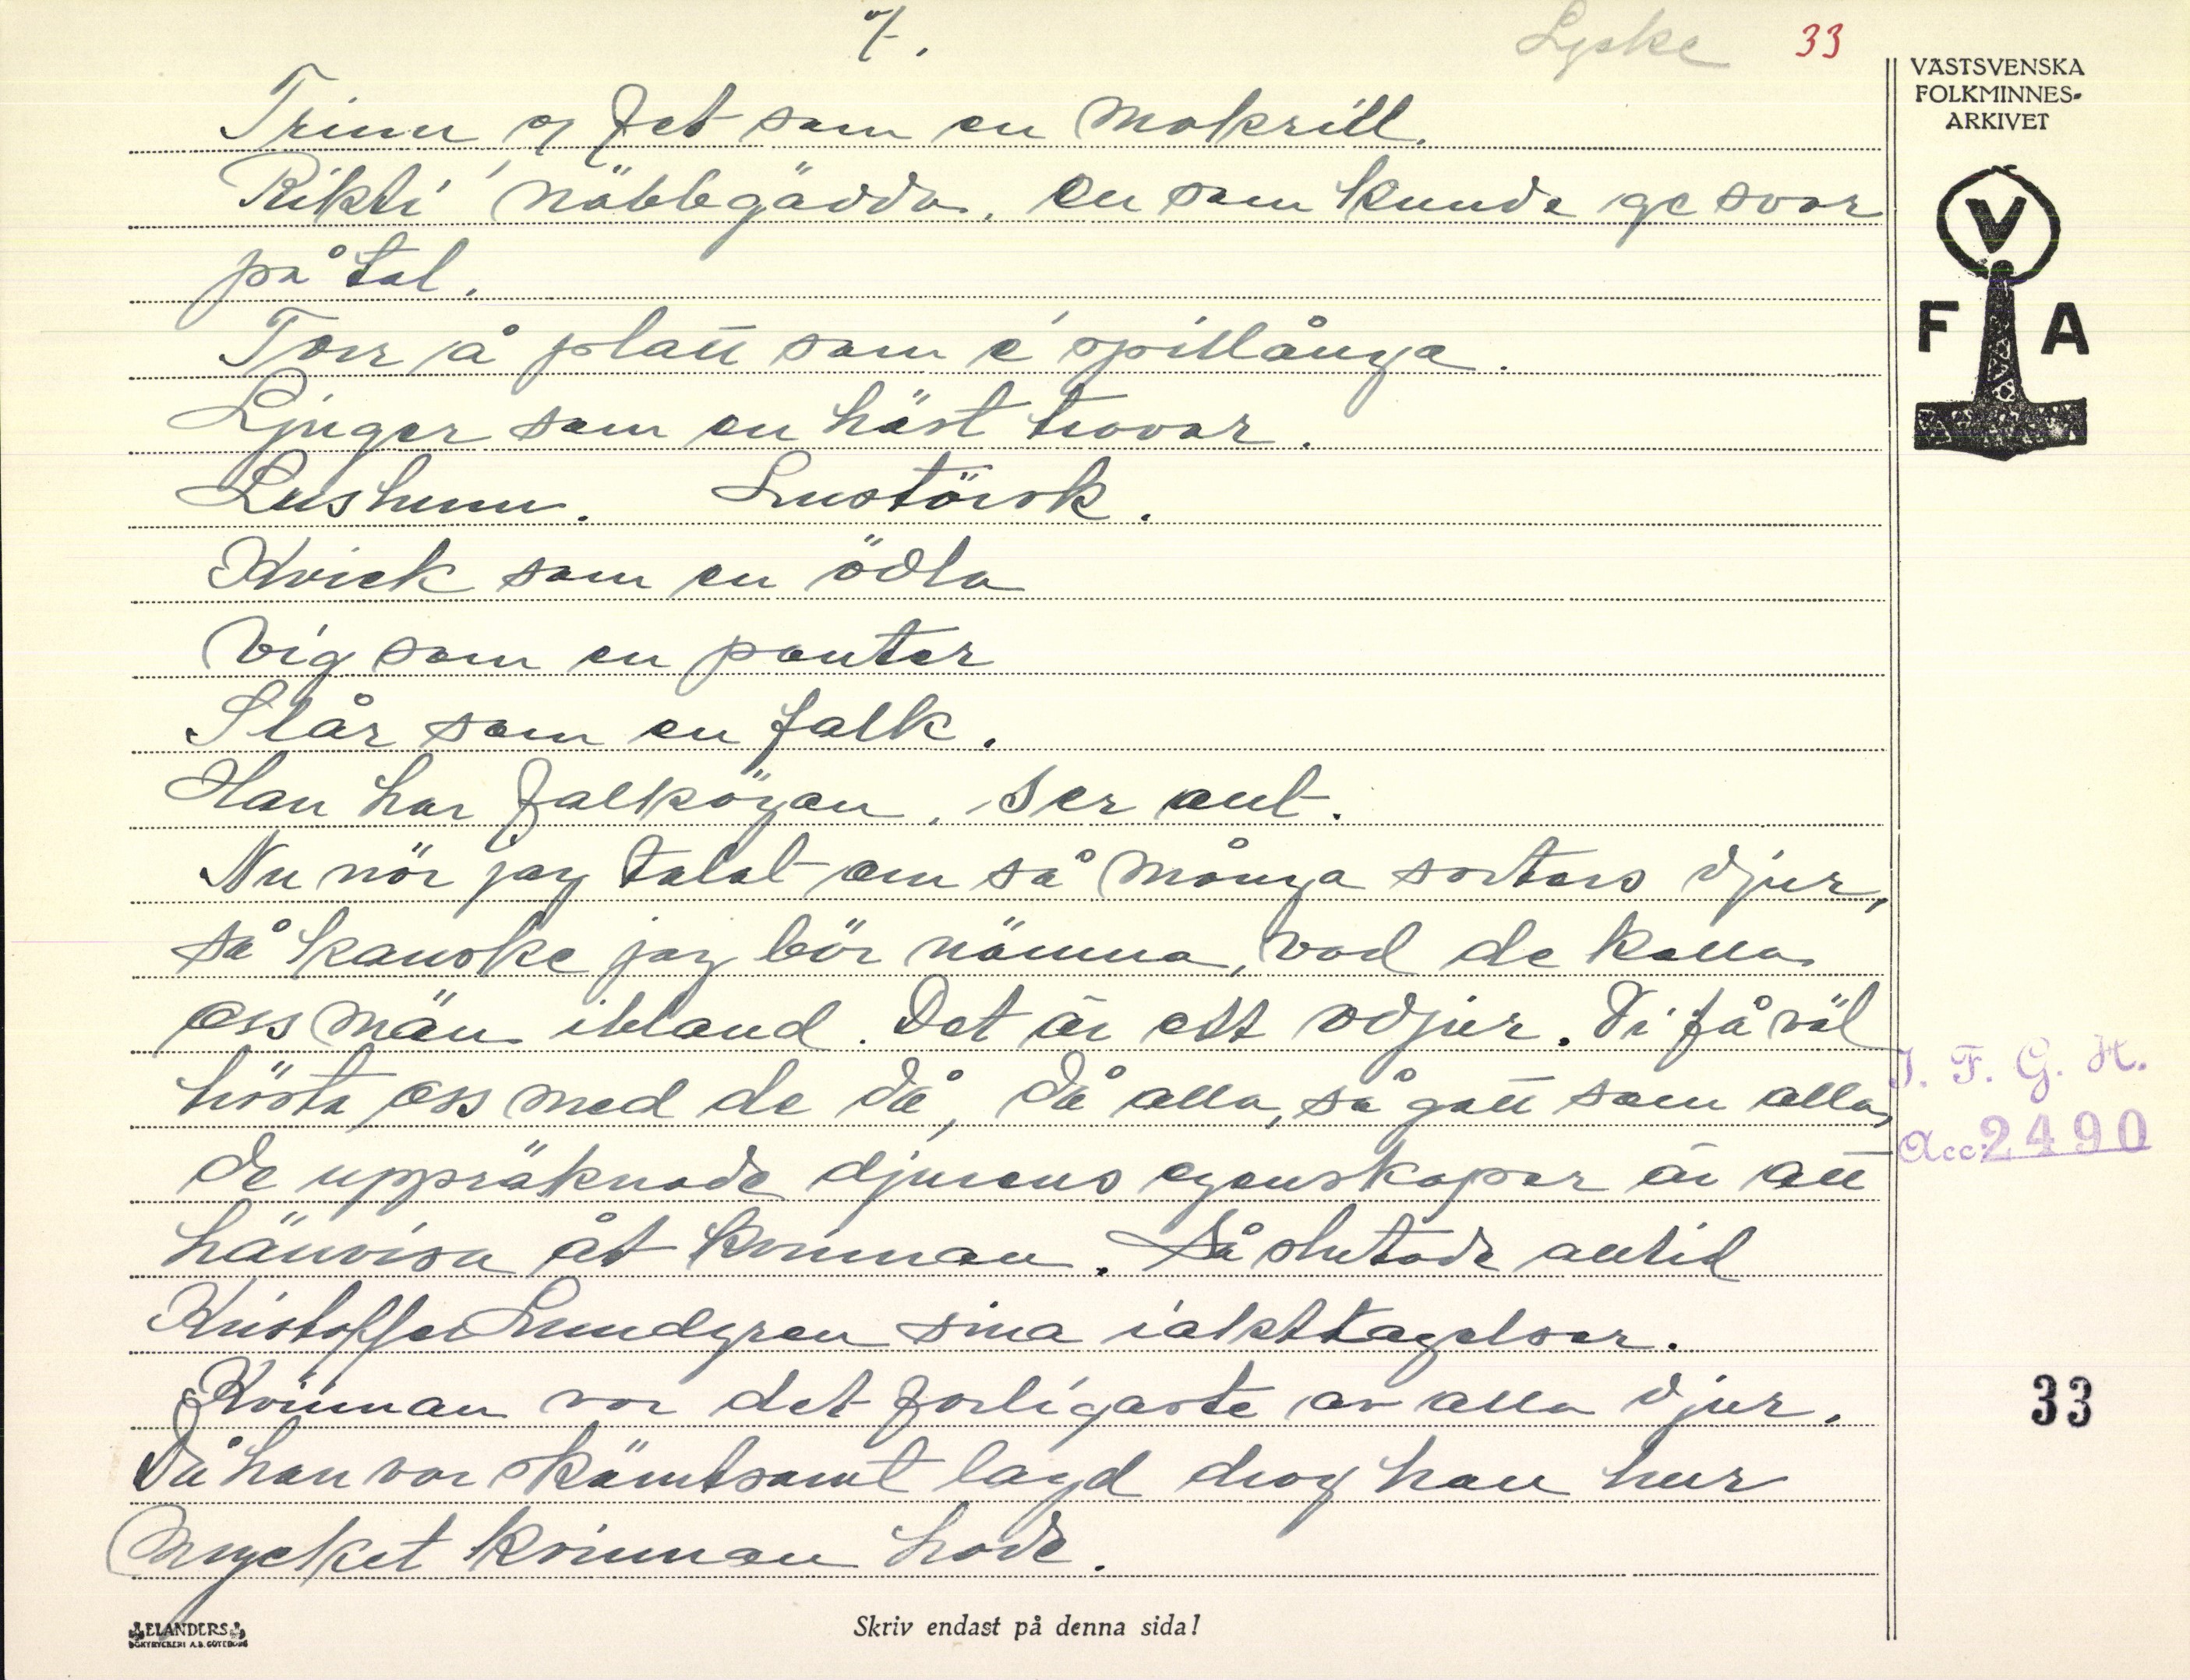 7.
Lyske 33
VÄSTSVENSKA
FOLKMINNES-
ARKIVET
V
F A
Trinn og fet som en makrill.
Rikti näbbgädda, en som kunde ge svar
på tal.
Torr å platt som e' spillånga.
Ljuger som en häst travar.
Lushunn. Lustörsk.
Kvick som en ödla
Vig som en panter
Slår som en falk.
Han har falkögon, ser allt.
Nu när jag talat om så många sorters djur,
så kanske jag bör nämna, vad de kalla
oss män ibland. Det är ett odjur. Vi få väl
trösta oss med de då, då alla, så gott som alla,
de uppräknade djurens egenskaper är att
hänvisa åt kvinnan. Så slutade alltid
Kristoffer Lundgren sina iakttagelser.
Kvinnan var det farligaste av alla djur.
Då han var skämtsamt lagd drog han hur
mycket kvinnan hade.
I. F. G. H.
Acc: 2490
33
ELANDERS
BOKTRYCKERI A.B. GÖTEBORG
Skriv endast på denna sida!